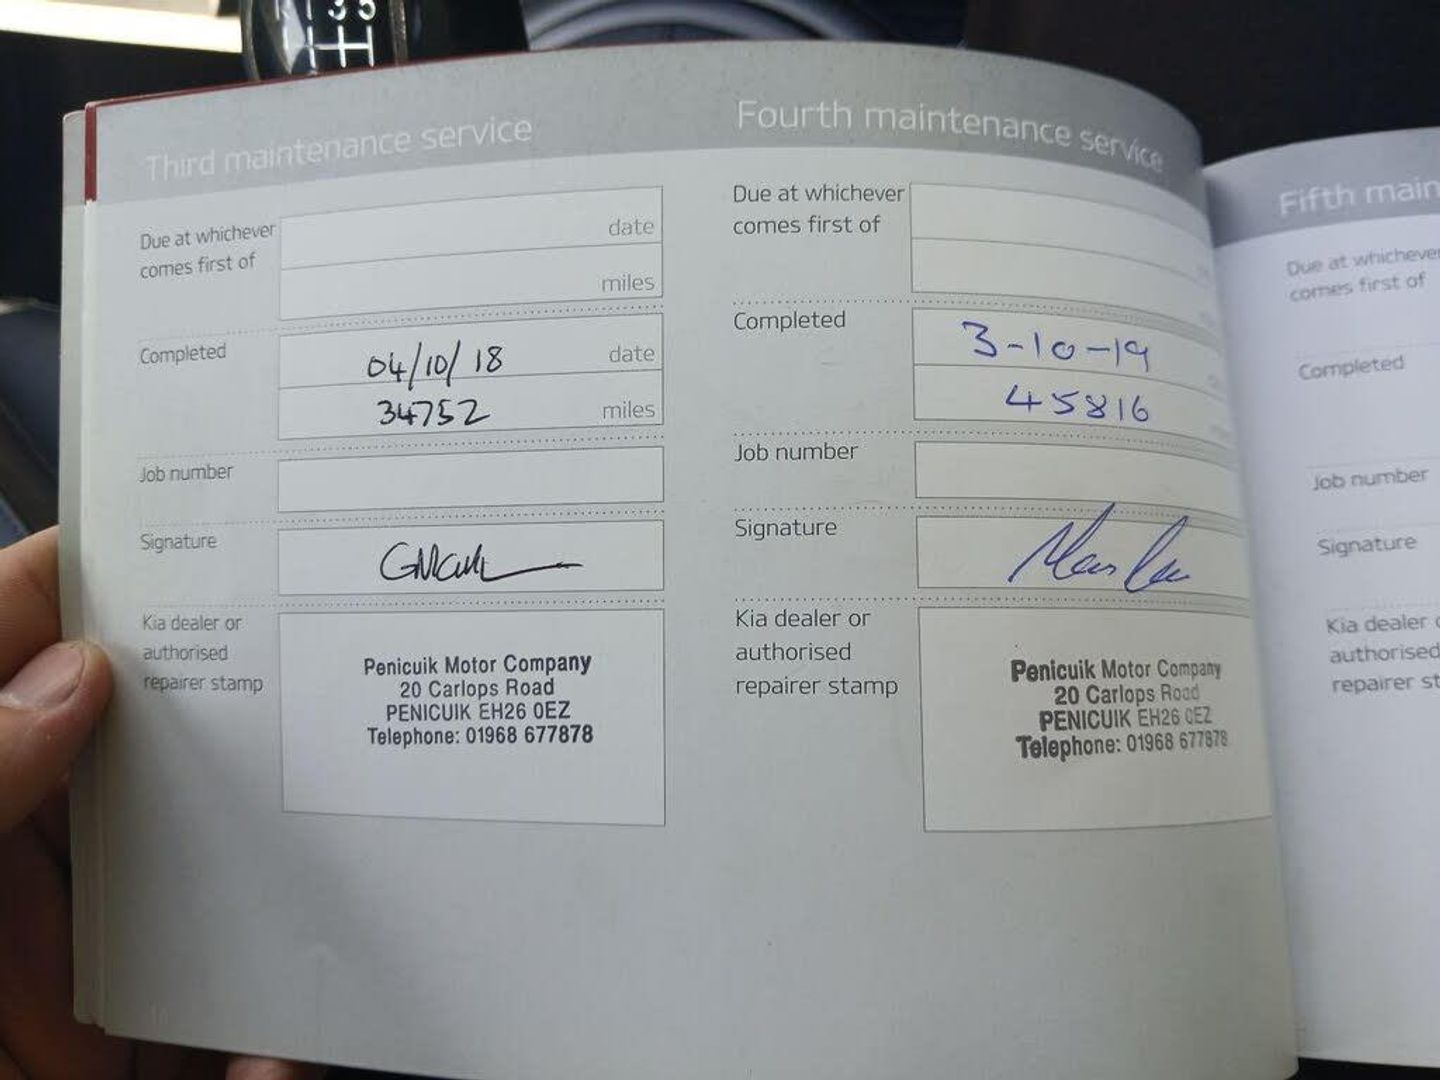 1 3 5
Third maintenance service
Due at whichever
comes first of
date
miles
Completed
04/10/18
date
34752
miles
Job number
Signature
Kia dealer or
authorised
repairer stamp
Penicuik Motor Company
20 Carlops Road
PENICUIK EH26 0EZ
Telephone: 01968 677878
Fourth maintenance service
Due at whichever
comes first of
Completed
3-10-19
45816
Job number
Signature
Kia dealer or
authorised
repairer stamp
Penicuik Motor Company
20 Carlops Road
PENICUIK EH26 0EZ
Telephone: 01968 677878
Fifth main
Due at whichever
comes first of
Completed
Job number
Signature
Kia dealer
authorised
repairer st